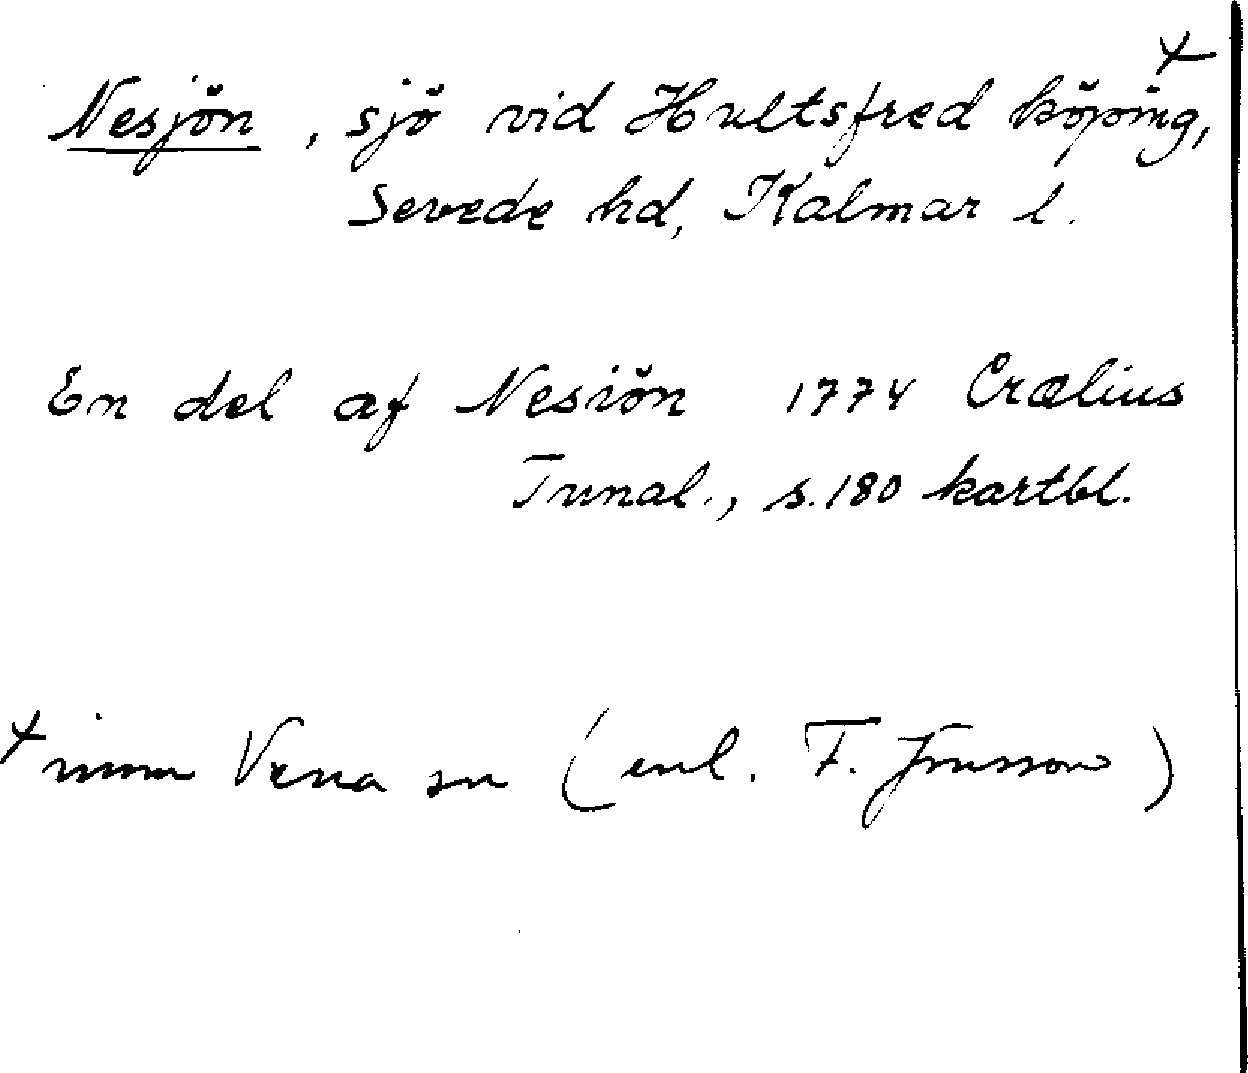 Nesjön, sjö vid Hultsfred köping, +
Sevede hd, Kalmar l.
En del af Nesiön 1774 Crælius
Tunal., s. 180 kartbl.
+ inom Vena sn (enl. F. Jonsson)